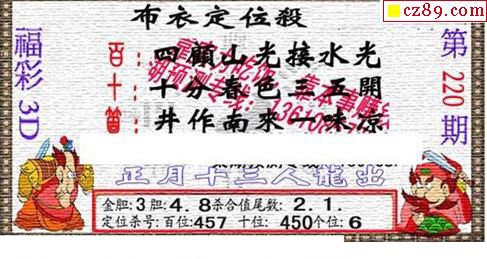 cz89.com
布衣定位殺
福彩3D
第220期
百: 四顧山光接水光
十: 十分春色三五開
個: 井作南來一味凉
正月十三人龍出
金胆:3胆:4.8杀合值尾数: 2.1.
定位杀号:百位:457 十位: 450个位:6